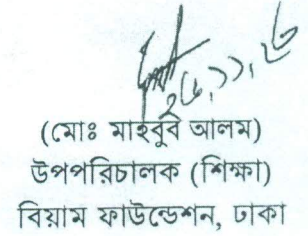 (মোঃ মাহবুব আলম)
উপপরিচালক (শিক্ষা)
বিয়াম ফাউন্ডেশন, ঢাকা